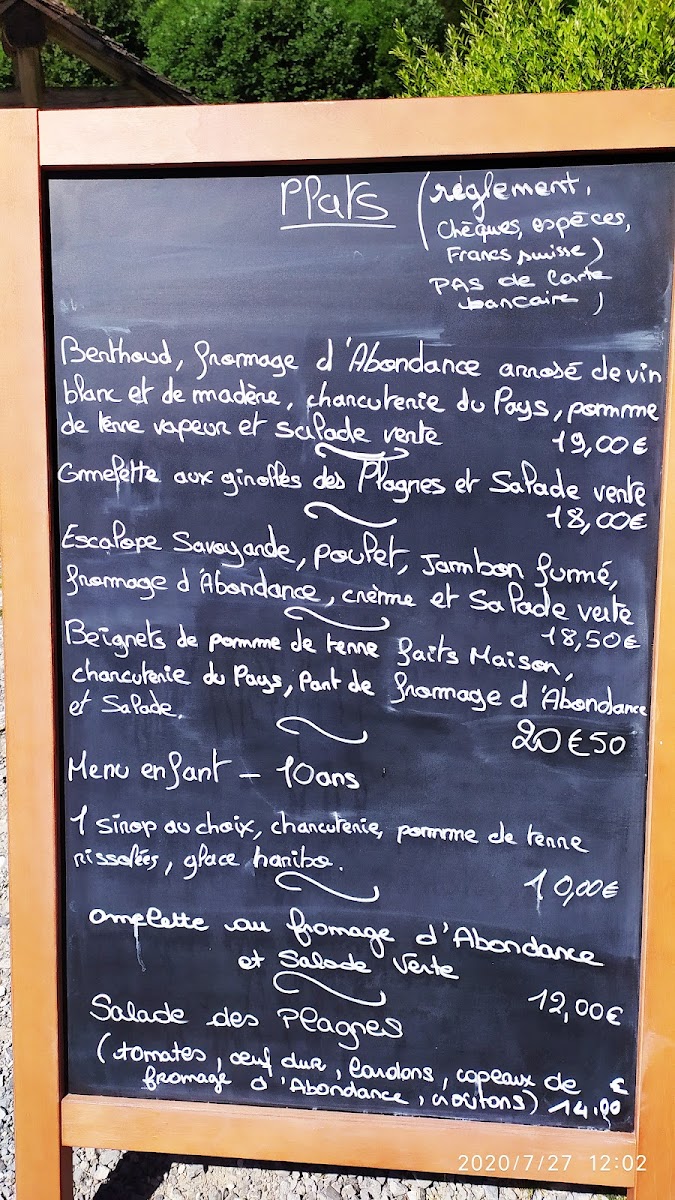 Plats (réglement,
Chèques, espèces,
Francs suisse)
PAS de Carte
bancaire)
Berthoud, fromage d'Abondance arrosé de vin
blanc et de madère, charcuterie du Pays, pomme
de terre vapeur et salade verte 19,00€
Omelette aux girolles des Plagnes et Salade verte
18,00€
Escalope Savoyande, poulet, Jambon fumé,
fromage d'Abondance, crème et Salade verte
18,50€
Beignets de pomme de terre faits Maison,
charcuterie du Pays, Part de fromage d'Abondance
et Salade.
20€50
Menu enfant - 10ans
1 sirop au choix, charcuterie, pomme de terre
rissolées, glace haribo.
10,00€
omelette au fromage d'Abondance
et Salade Verte
12,00€
Salade des Plagnes
(tomates, œuf dur, lardons, copeaux de €
fromage d'Abondance, croûtons) 14.00
2020/7/27 12:02